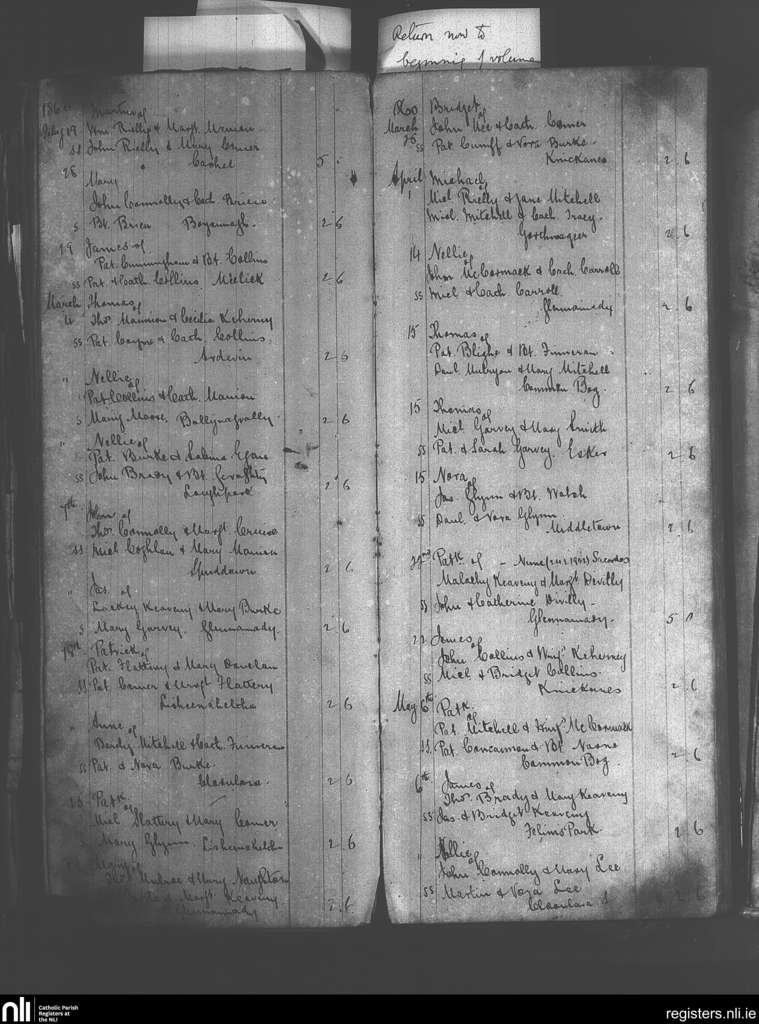 Return now to
beginning of volume
186
Martin of
Feby 19 Wm Rielly & Margt Manion
SS John Rielly & Mary Comer
Cashel 5
28 Mary
John Connolly & Cath
S Bt. Boyounagh. 2 6
29 James of
Pat. Cunningham & Bt. Collins
SS Pat. & Cath Collins. Meelick 2 6
March Thomas of
4 Thos Mannion & Cecilia Keherny
SS Pat Coyne & Cath. Collins.
Ardevin 2 6
" Nellie of
Pat Collins & Cath. Manion
S Mary Moore. Ballynagrally. 2 6
" Nellie of
Pat. Burke & Sabina Egan
SS John Brady & Bt. Geraghty
Loughpark 2 6
7th of
Thos. Connolly & Margt
SS Miel Coghlan & Mary Manion
Spuddawn 2 6
" Jas. of
Lackey Keaveny & Mary Burke
S Mary Garvey. Glennamady. 2 6
Patrick of
Pat. Flattery & Mary Donelan
SS Pat Comer & Margt Flattery
2 6
" Anne of
Bendy Mitchell & Cath. Finneran
SS Pat. & Nora Burke.
Cloonlara. 2 6
Patk of
Miel Slattery & Mary Comer
Mary Glynn. 2 6
Mary of
Thos & Mary Naughton
& Margt Keaveny
Glennamady 2 6
860 Bridget of
March John Mee & Cath Comer
25 SS Pat Cuniff & Nora Burke.
Knickanes 2 6
April Michael of
1 Miel Rielly & Jane Mitchell
Miel. Mitchell & Cath Tracy.
Gorthnageer 2 6
14 Nellie of
John McCormack & Cath. Carroll
SS Miel & Cath Carroll
Glennamady 2 6
15 Thomas of
Pat. Blighe & Bt. Finneran.
Danl Mulryan & Mary Mitchell
Common Bog. 2 6
15 Thomas of
Miel Garvey & Mary Smith
SS Pat. & Sarah Garvey. Esker 2 6
15 Nora of
Jas. Glynn & Bt. Walsh
SS Danl. & Nora Glynn
Middletown 2 6
22nd Patk of - Nunc Sacerdos
Malachy Keaveny & Margt Devilly
SS John & Catherine Divilly.
Glennamady. 5 0
22 James of
John Collins & Winy Keherney
SS Miel & Bridget Collins.
Knickanes 2 6
May 6th Patk. of
Pat. Mitchell & Winy McCormack
SS. Pat. Concannon & Bt. Naone
Common Bog. 2 6
6th James of
Thos. Brady & Mary Keaveny
SS Jas. & Bridget Keaveny
Felims Park. 2 6
" Nellie of
John Connolly & Mary Lee
SS Martin & Nora Lee
Cloonlara S 2 6
nli
Catholic Parish
Registers at
the NLI
registers.nli.ie